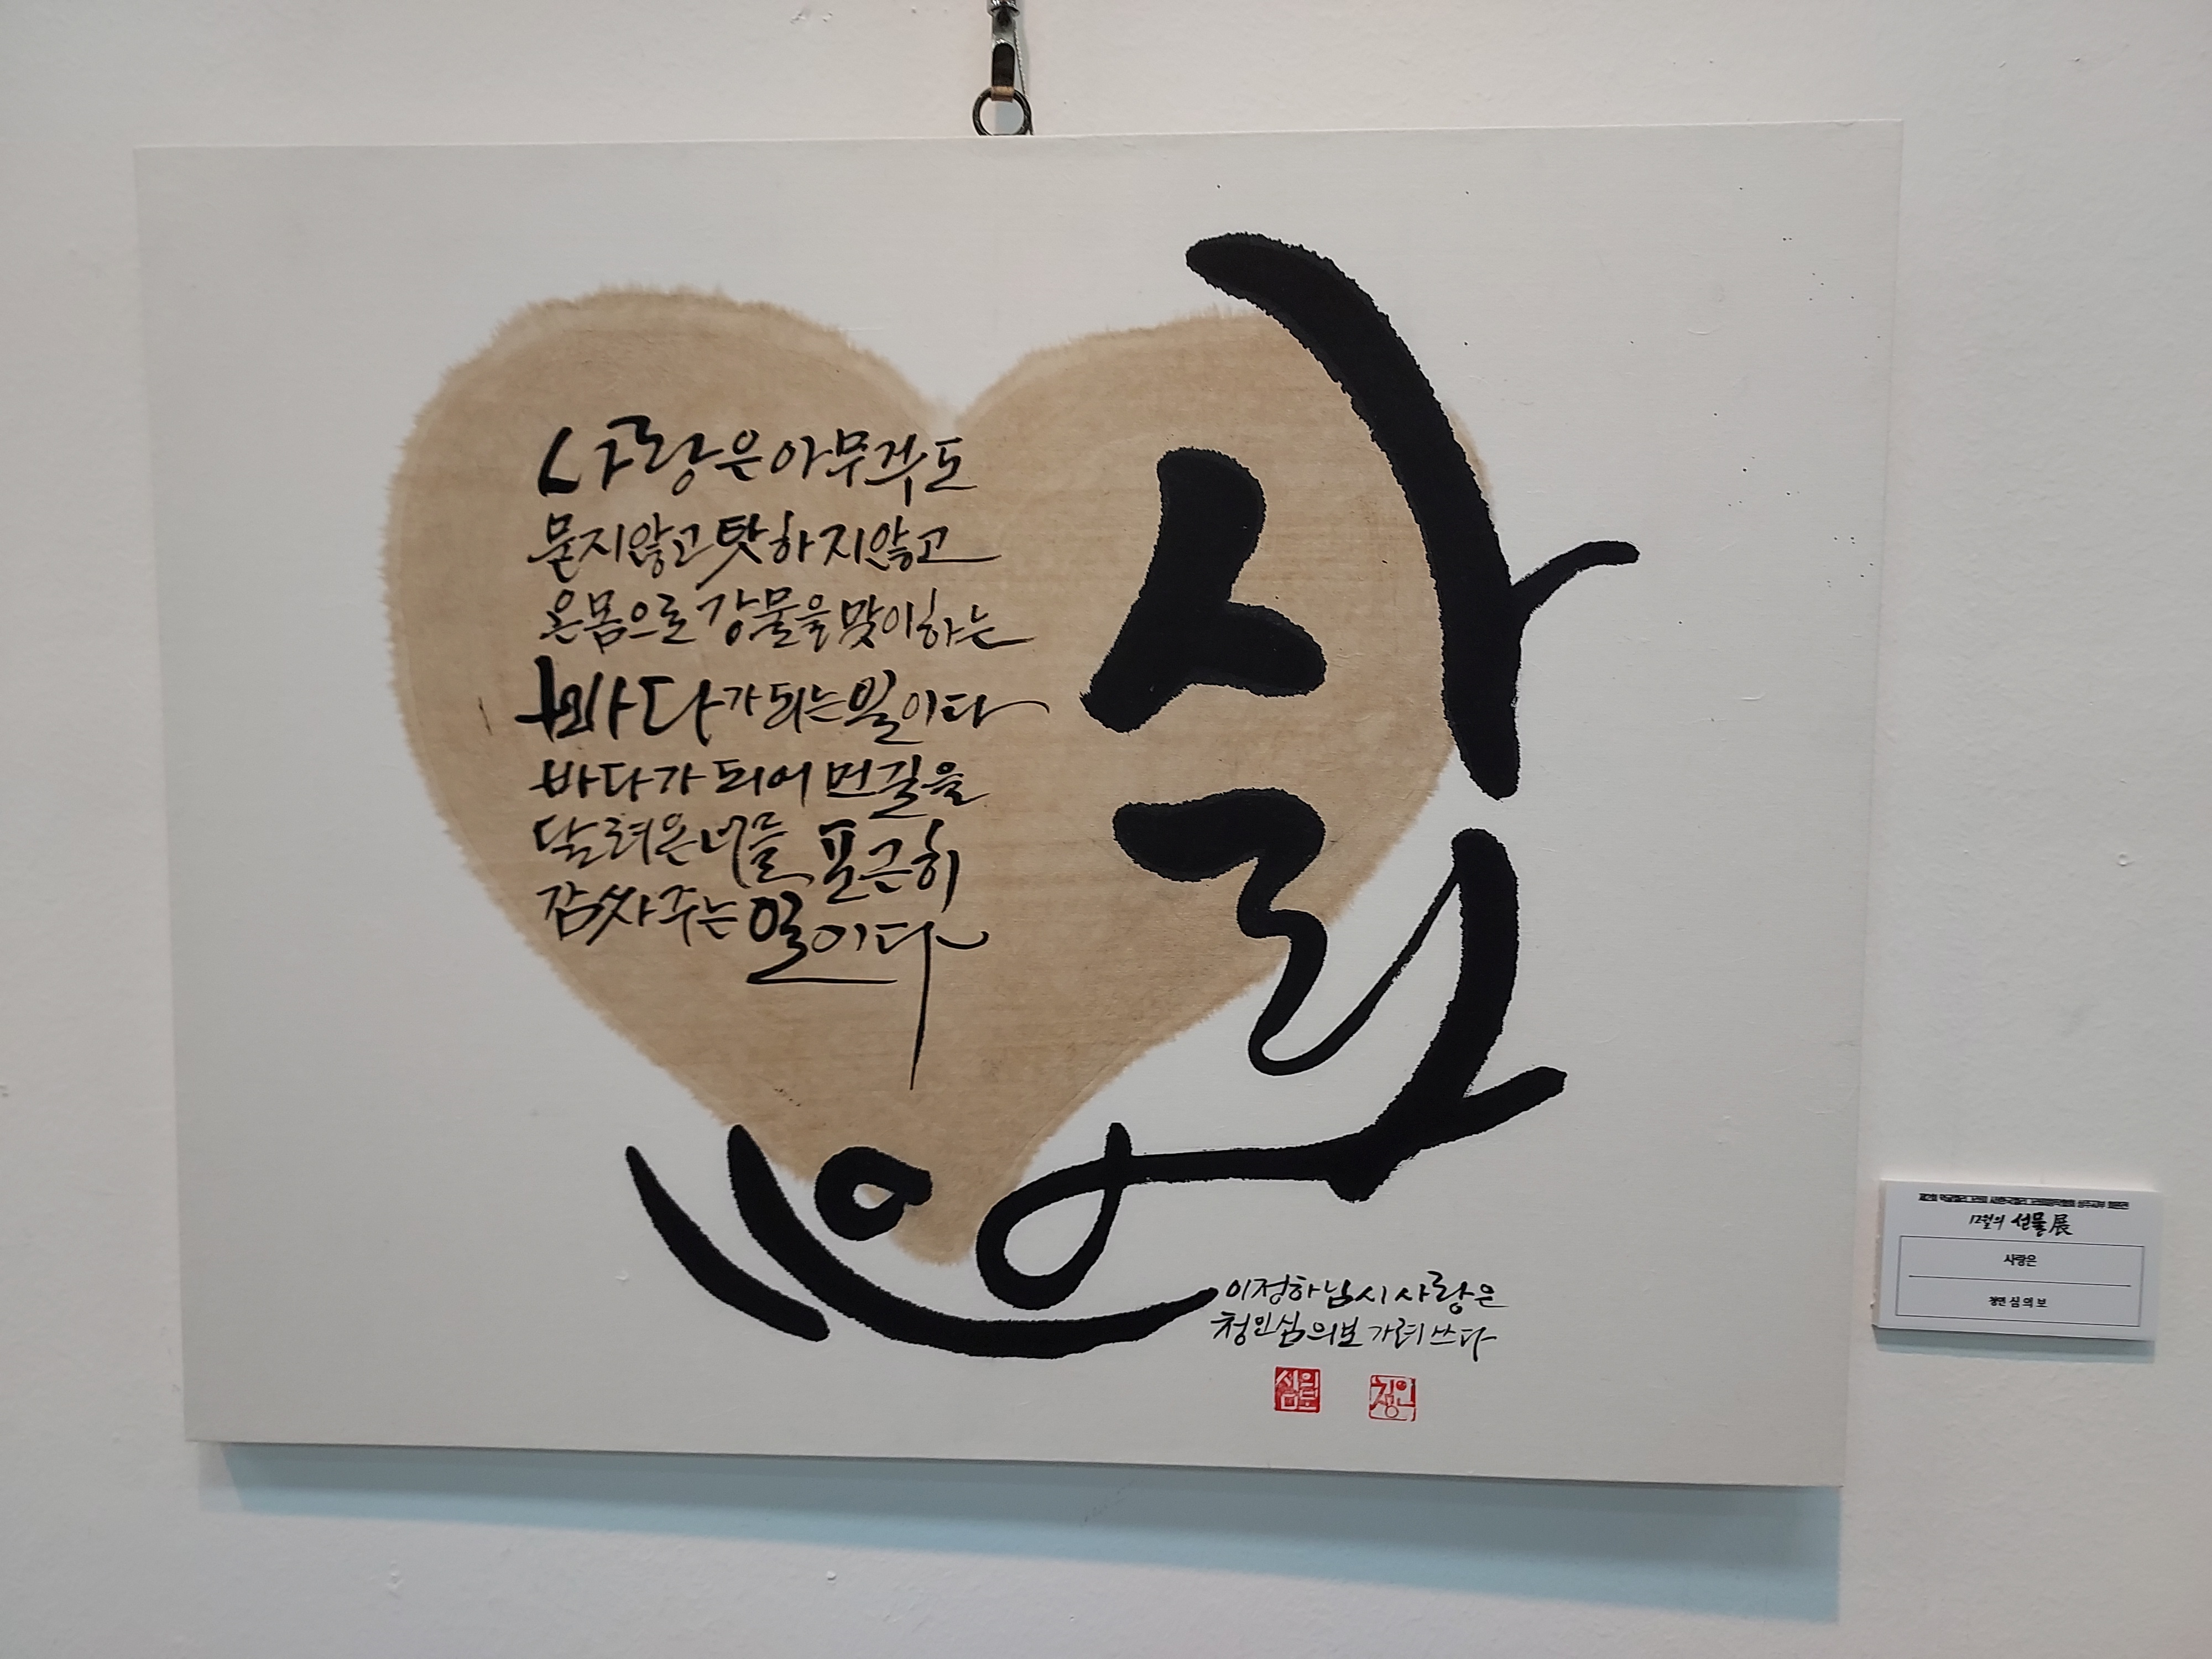 사랑은 아무것도
묻지 않고 탓하지 않고
온몸으로 강물을 맞이하는
바다가 되는 일이다
바다가 되어 먼길을
달려온 너를 포근히
감싸 주는 일이다
사랑은
이정하님 시 사랑은
청인 심의보 가려 쓰다
심의보
청인
12월의 선물展
사랑은
심의보